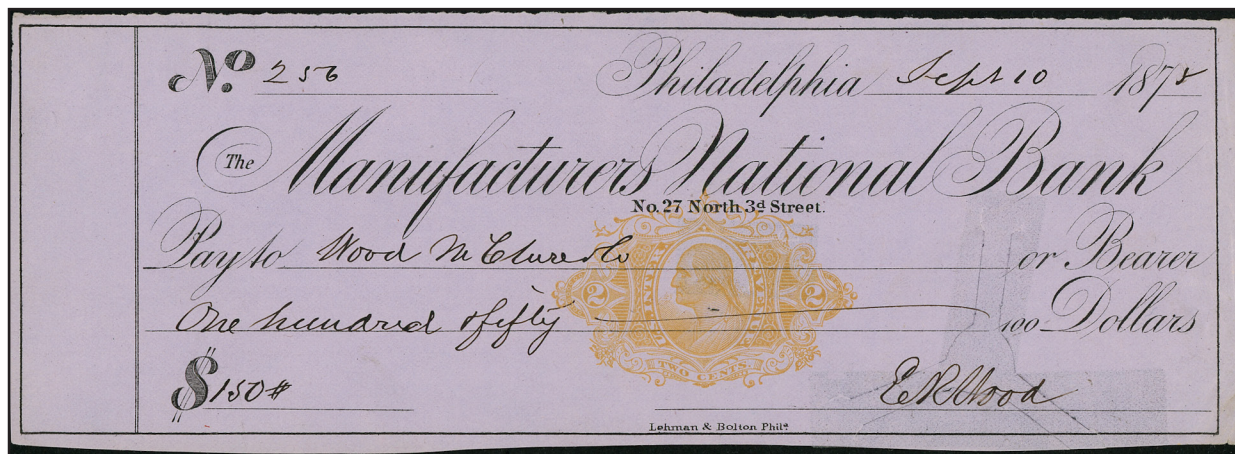 No. 256 Philadelphia Sept 10 1878
The Manufacturers National Bank
No. 27 North 3d Street.
Pay to Wood McClure & Co or Bearer
One hundred & fifty 100 Dollars
U.S. INTER. REVENUE
2 2
TWO CENTS.
$ 150#
E R Wood
Lehman & Bolton Phila